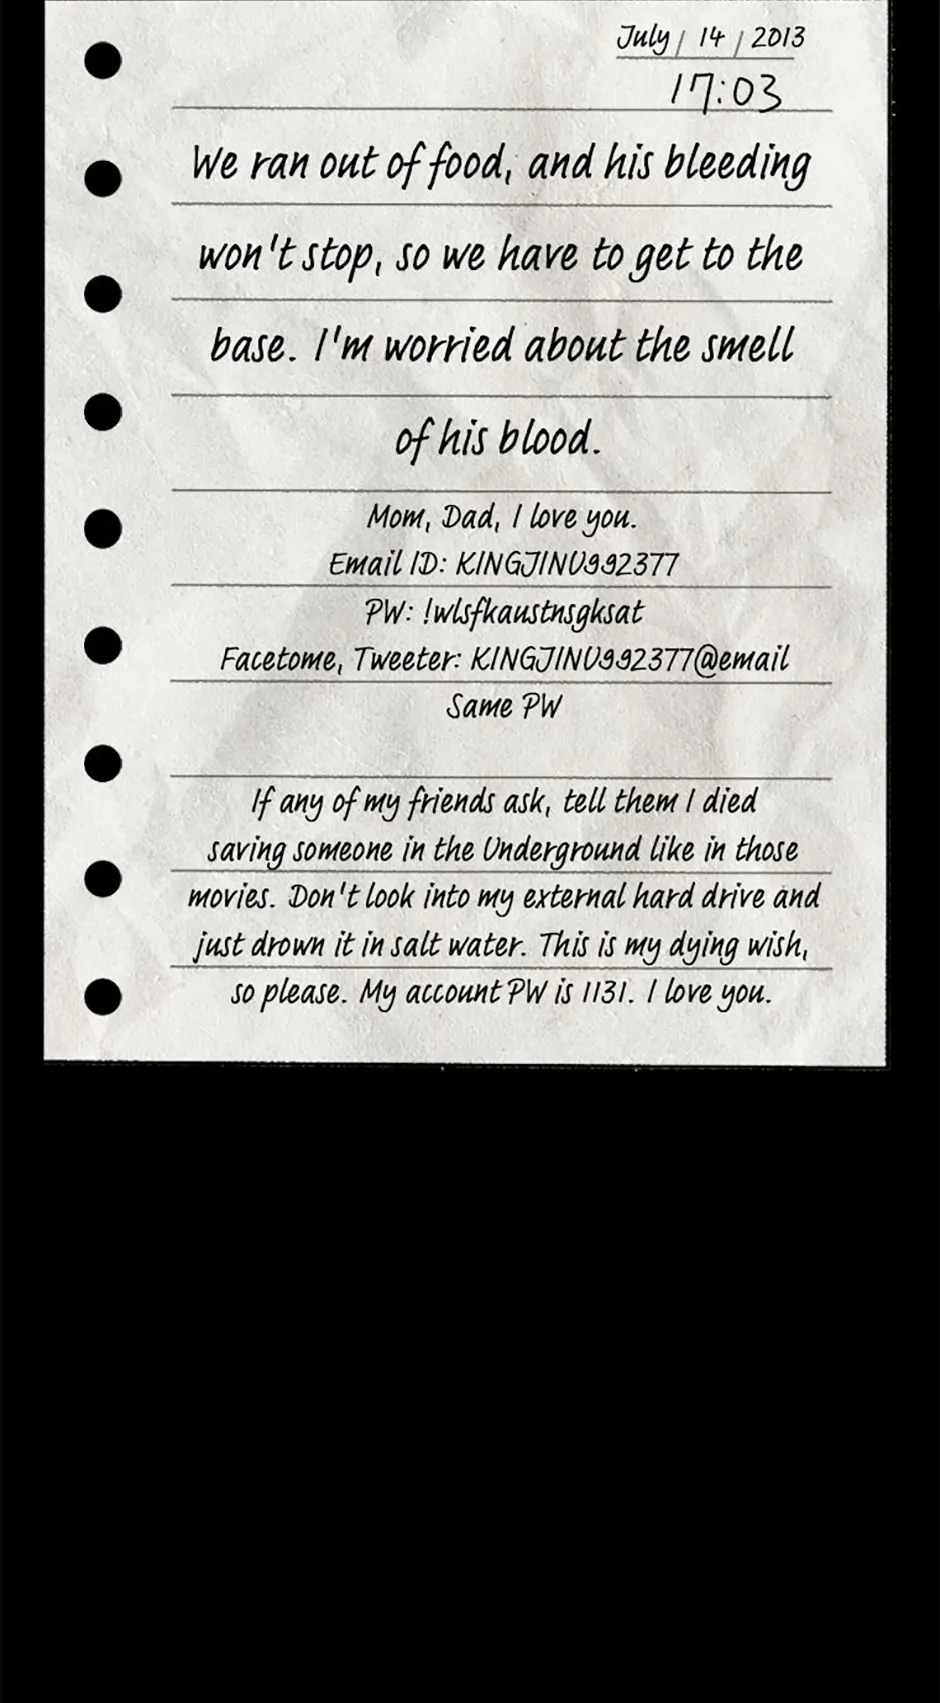 July / 14 / 2013
17:03
We ran out of food, and his bleeding
won't stop, so we have to get to the
base. I'm worried about the smell
of his blood.
Mom, Dad, I love you.
Email ID: KINGJINU992377
PW: !wlsfkaustnsgksat
Facetome, Tweeter: KINGJINU992377@email
Same PW
If any of my friends ask, tell them I died
saving someone in the Underground like in those
movies. Don't look into my external hard drive and
just drown it in salt water. This is my dying wish,
so please. My account PW is 1131. I love you.